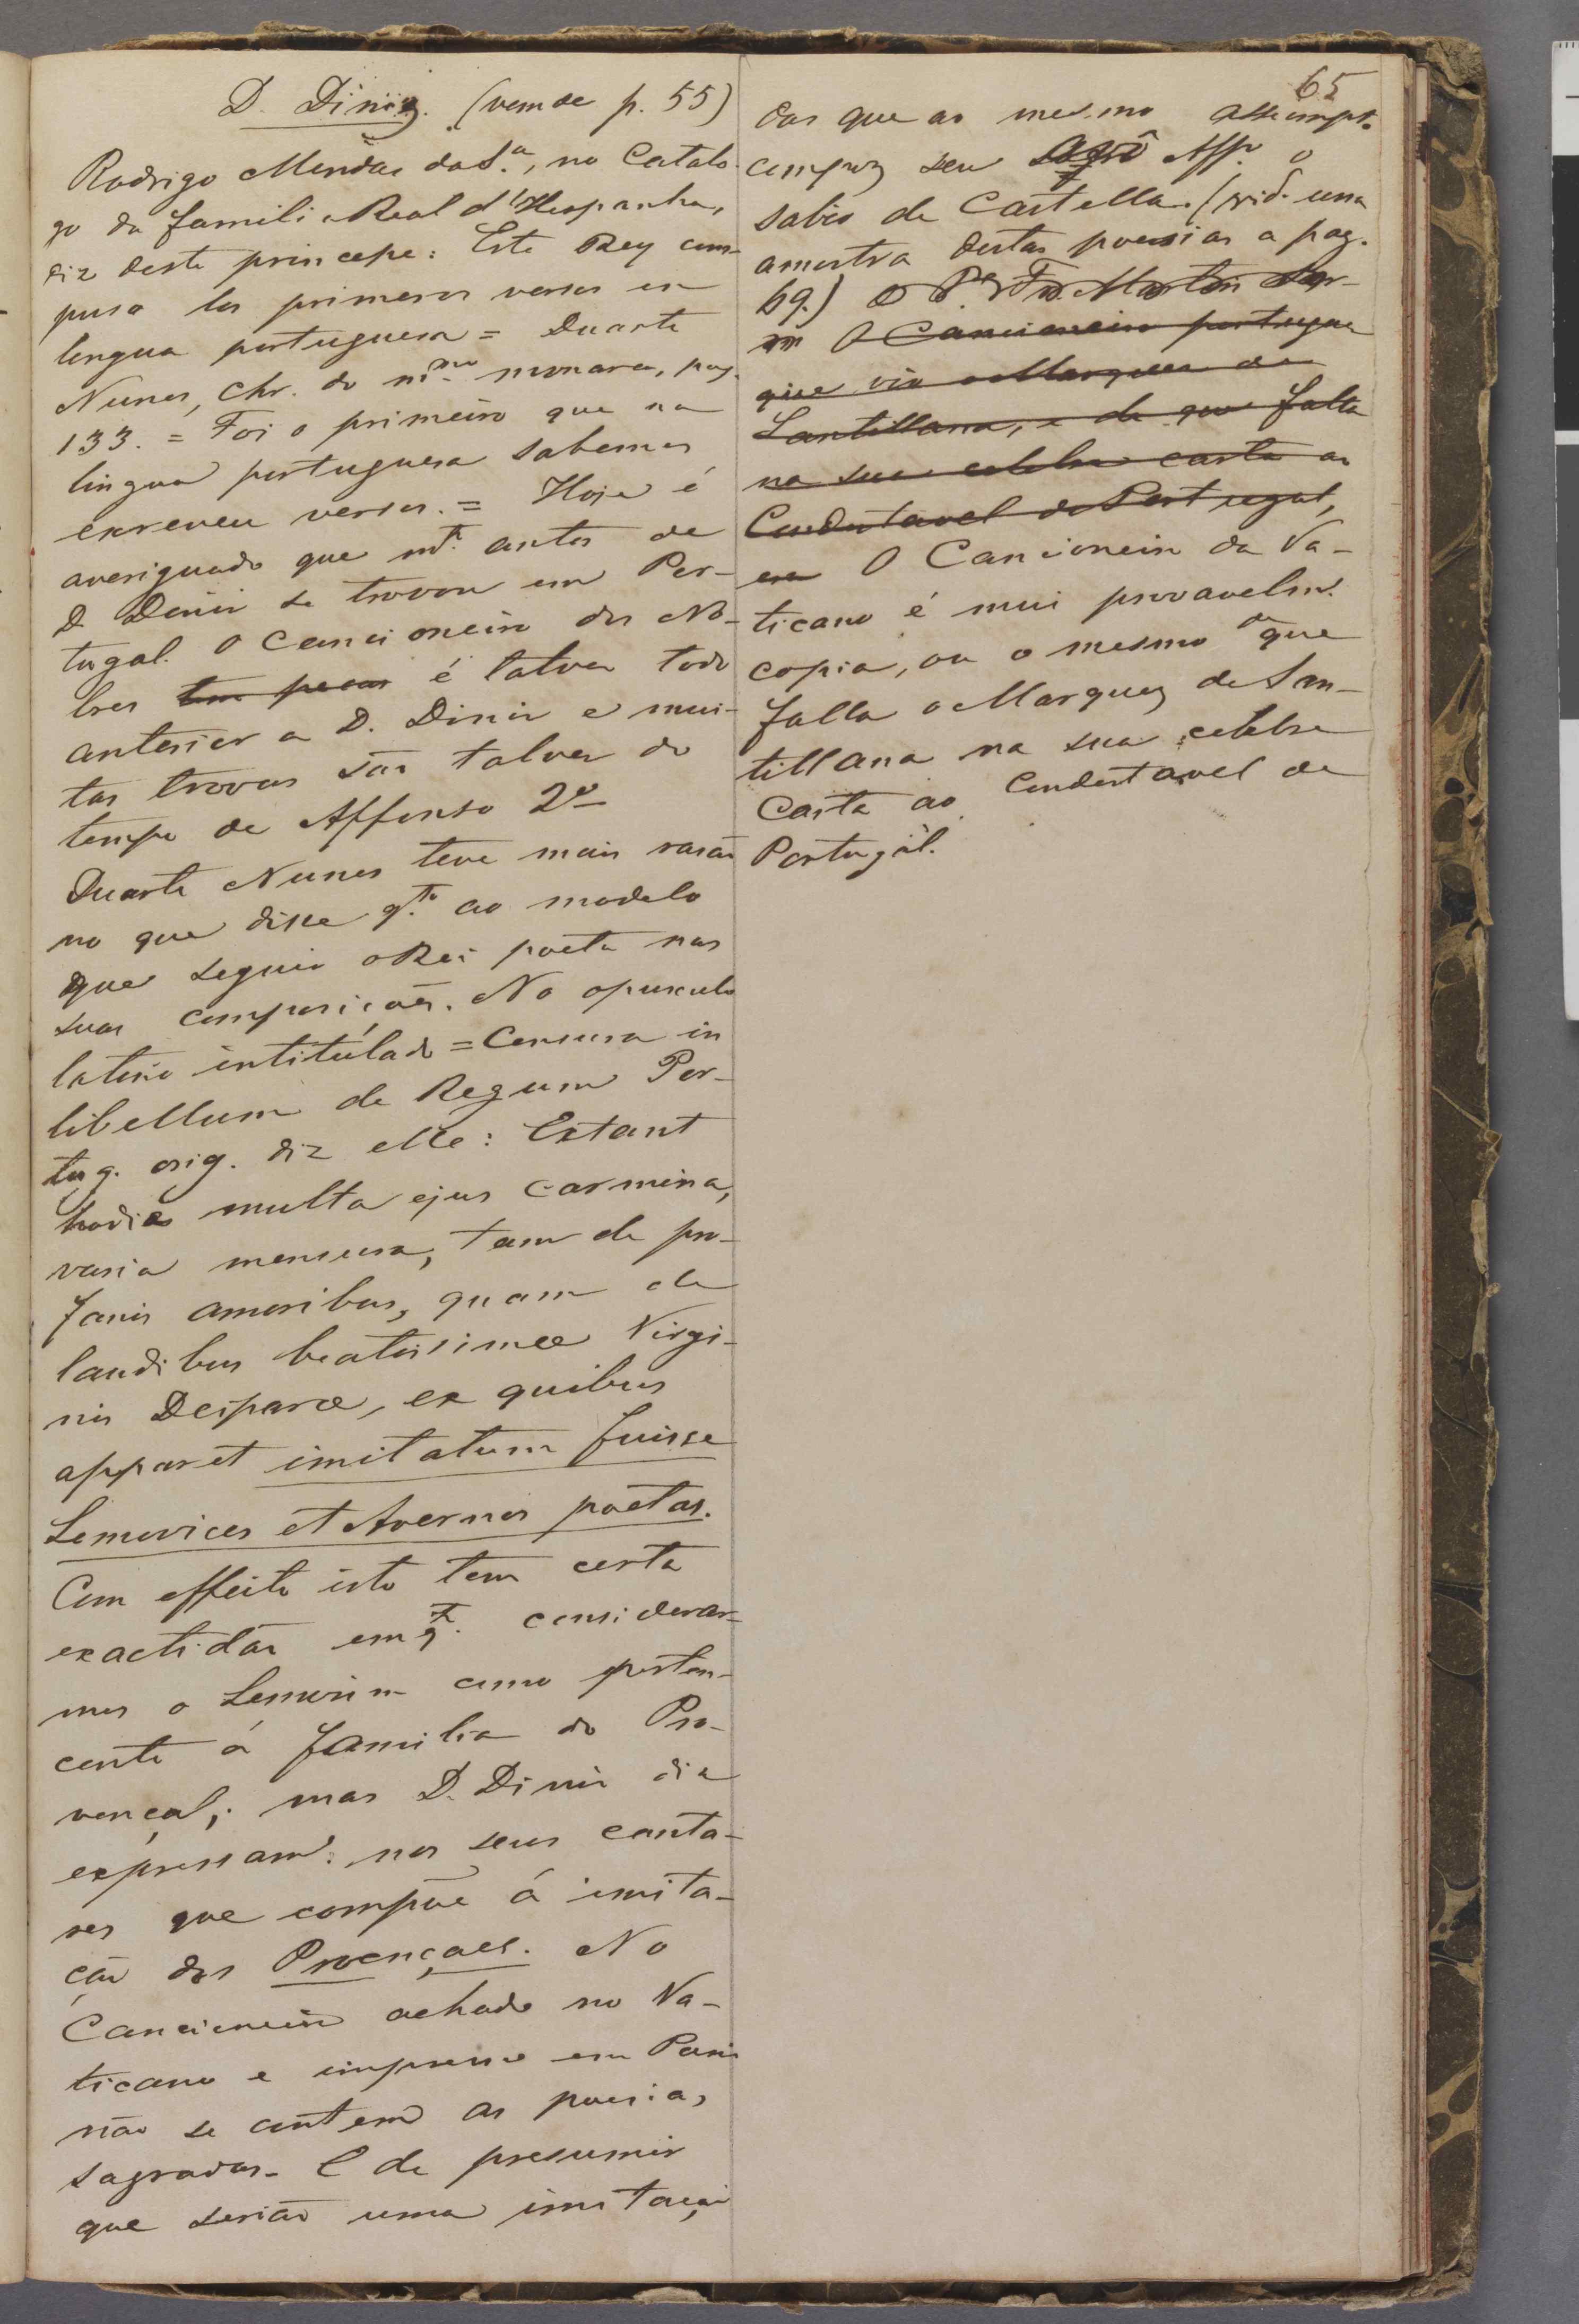 65
D. Diniz. (vem de p. 55)
Rodrigo Mendes da S.ª, no Catalo-
go da famili Real d'Hespanha,
diz deste principe: Este Rey com-
puso los primeros versos en
lengua portuguesa = Duarte
Nunes, Chr. do m.mo monarca, pag.
133. = Foi o primeiro que na
lingua portuguesa sabemos
escreveu versos. = Hoje é
averiguado que mt.º antes de
D. Diniz se trovou em Por-
tugal. O Cancioneiro dos No-
bres é talvez todo
anterior a D. Diniz e mui-
tas trovas são talvez do
tempo de Affonso 2º
Duarte Nunes teve mais rasão
no que disse q.to ao modelo
que seguio o Rei poeta nas
suas composições. No opusculo
latino intitulado = Censura in
libellum de Regum Por-
tug. orig. diz elle: Extant
hodie multa ejus carmina,
varia mensura, tam de pro-
fanis amoribus, quam de
laudibus beatissimæ Virgi-
nis Deiparæ, ex quibus
apparet imitatum fuisse
Lemovices et Avernos poetas.
Com effeito isto tem certa
exactidão em q.to considerar-
mos o Lemosim como perten-
cente á familia do Pro-
vençal; mas D. Diniz diz
expressam.e nos seus canta-
res que compõe á imita-
ção dos Proençaes. No
Cancioneiro achado no Va-
ticano e impresso em Paris
não se contem as poesias
sagradas. E de presumir
que serião uma imitação
das que ao mesmo assumpto
compoz seu Avô Aff.º o
sabio de Castella. (vid. uma
amostra destas poesias a pag.
69.) O P.e Fr. Martin Sar-
O Cancioneiro portuguez
que vio o Marquez de
Santillana, e de que falla
na sua celebre carta ao
Condestavel de Portugal,
era O Cancioneiro da Va-
ticano é mui provavelm.e
copia, ou o mesmo de que
falla o Marquez de San-
tillana na sua celebre
Carta ao Condestavel de
Portugal.